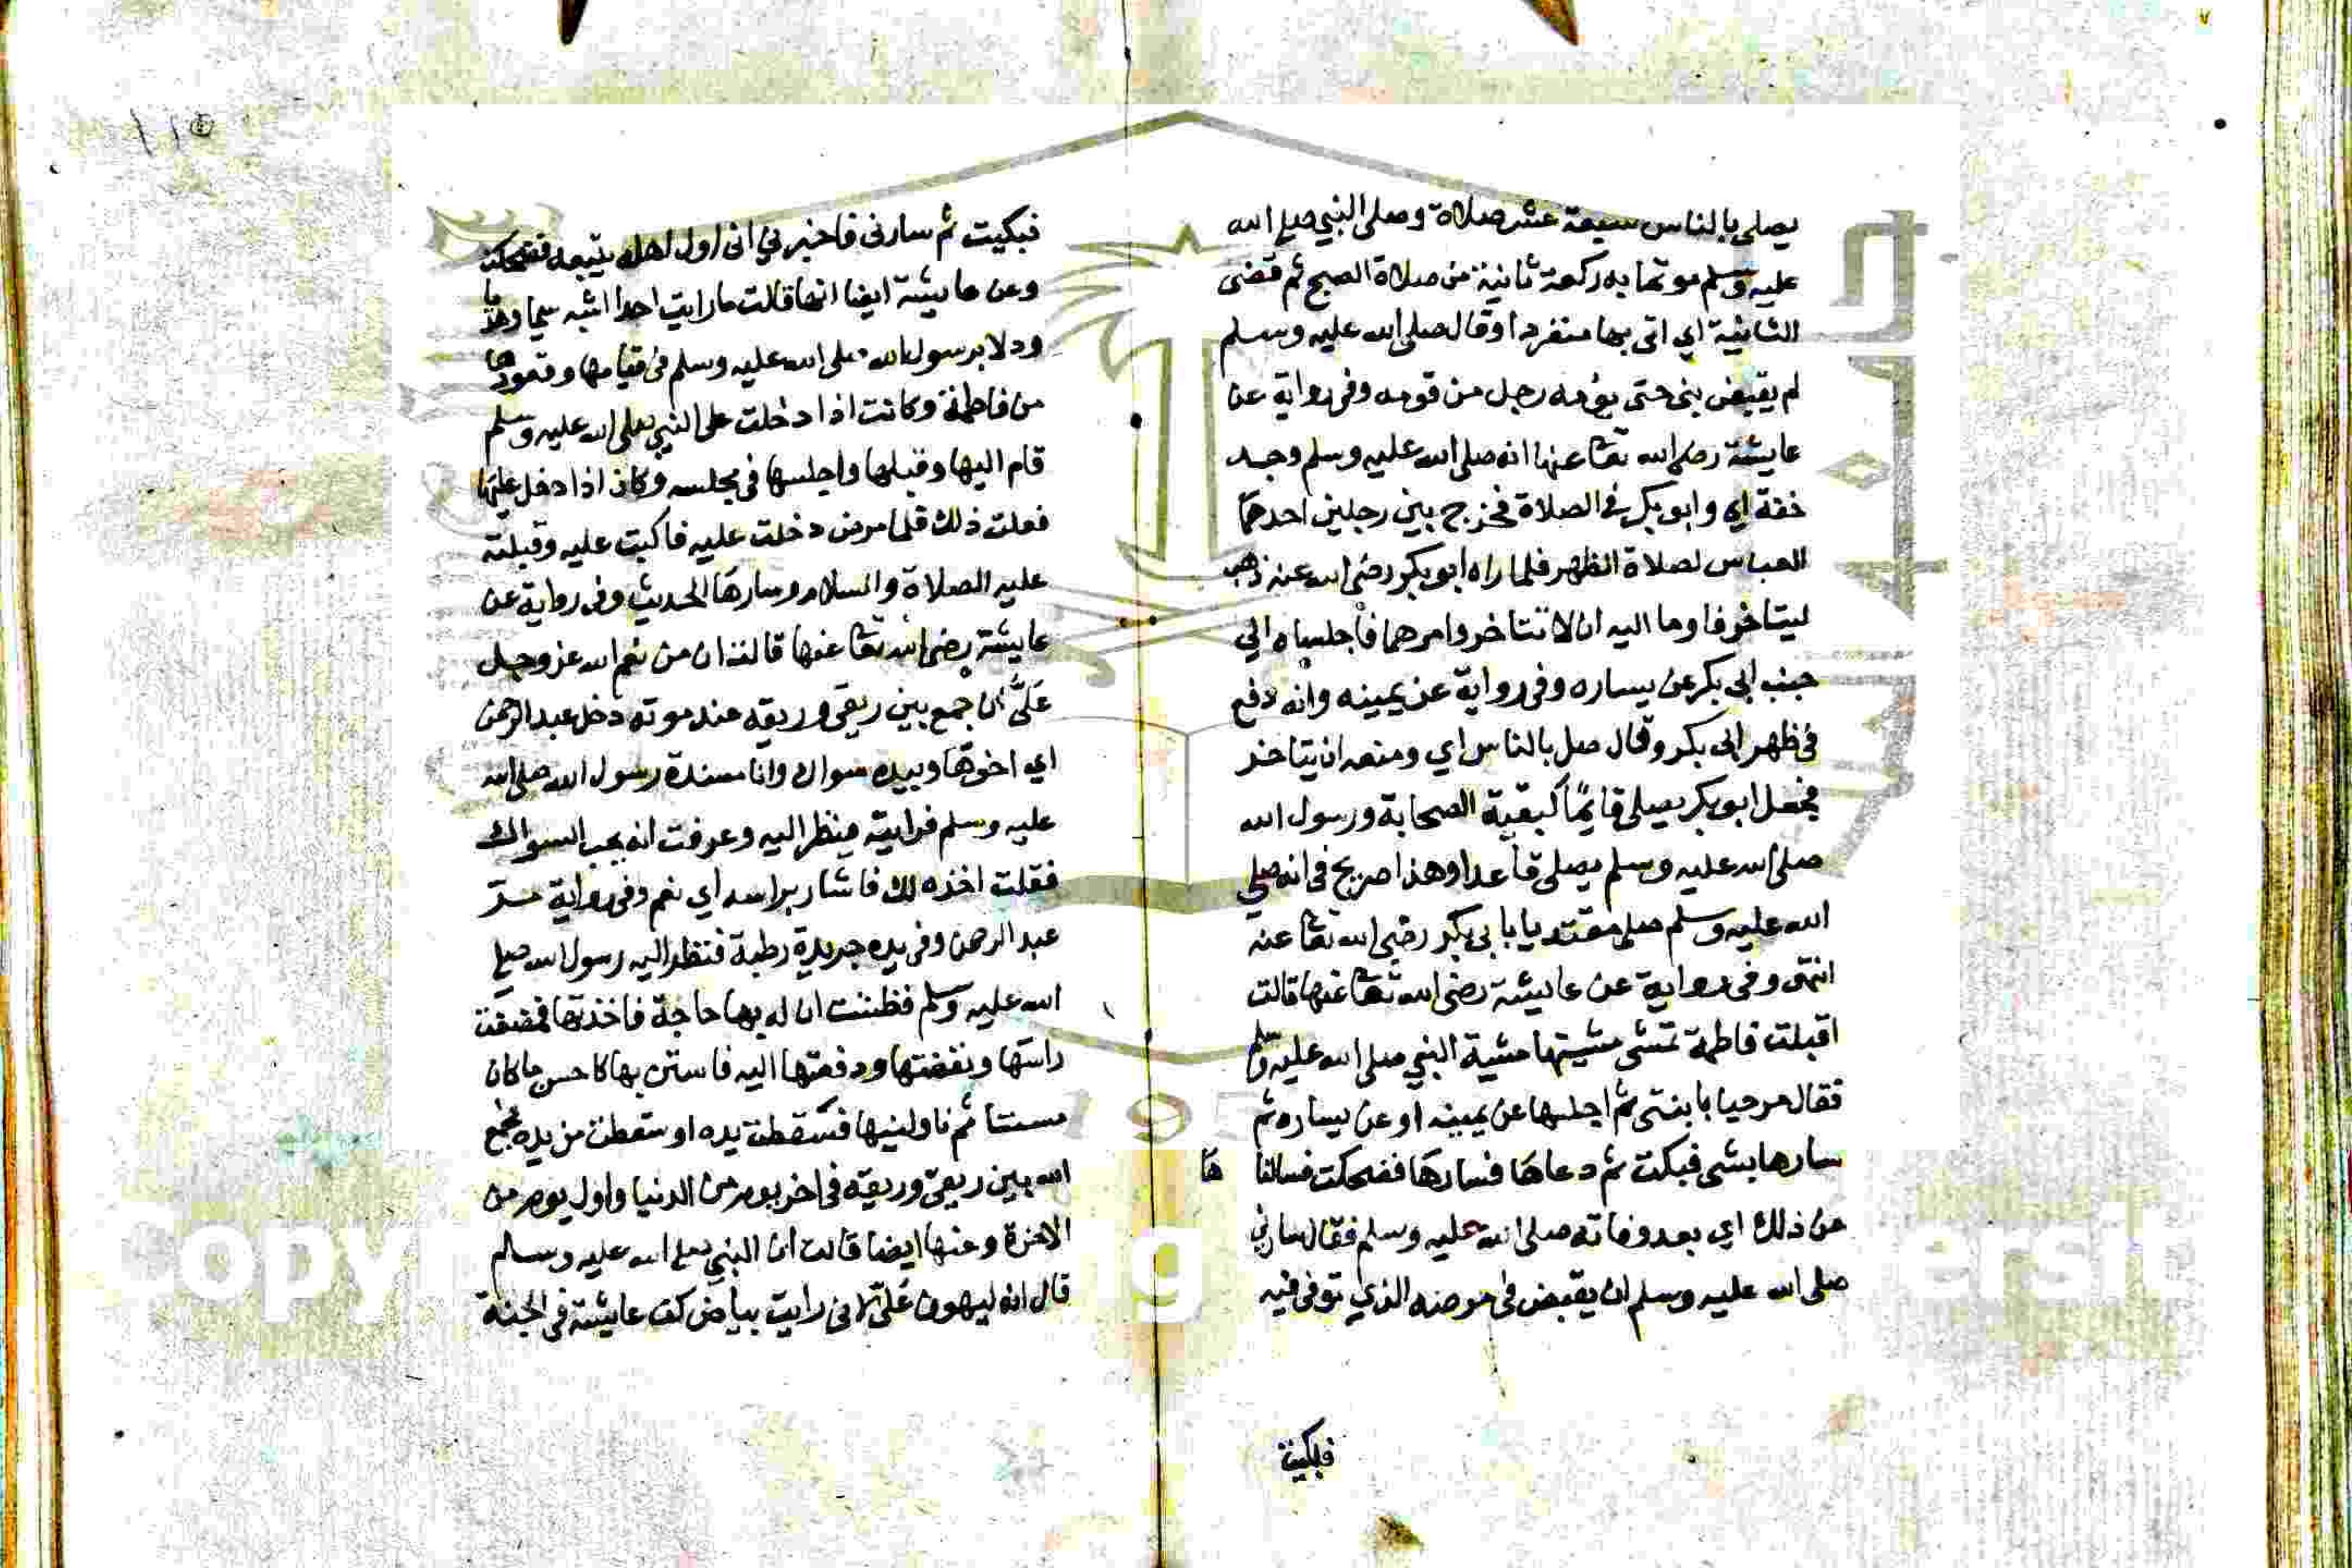 يصلى بالناس سبعة عشر صلاة وصلى النبي صلى الله
عليه وسلم موتما به ركعة ثانية من صلاة الصبح ثم قضى
الثانية اي اتى بها منفردا وقال صلى الله عليه وسلم
لم يقبض نبى حتى يؤمه رجل من قومه وفى رواية عن
عايشة رضى الله تعا عنها انه صلى الله عليه وسلم وجد
خفة اي وابو بكر فى الصلاة فخرج بين رجلين احدهما
العباس لصلاة الظهر فلما راه ابو بكر رضى الله عنه ذهب
ليتاخر فاوما اليه ان لا تتاخر وامرهما فاجلساه الي
جنب ابى بكر عن يساره وفى رواية عن يمينه وانه دفع
فى ظهر ابى بكر وقال صل بالناس اي ومنعه ان يتاخر
فجعل ابو بكر يصلى قايمًا كبقية الصحابة ورسول الله
صلى الله عليه وسلم يصلى قاعدا وهذا صريح فى انه صلي
الله عليه وسلم صلى مقتديا بابى بكر رضى الله تعا عنه
انتهى وفى رواية عن عايشة رضى الله تعا عنها قالت
اقبلت فاطمة تمشى مشيتها مشية النبي صلى الله عليه وسلم
فقال مرحبا بابنتى ثم اجلسها عن يمينه او عن يساره ثم
سارها بشى فبكت ثم دعاها فسارها فضحكت فسالنا ها
عن ذلك اي بعد وفاته صلى الله عليه وسلم فقال سارني
صلى الله عليه وسلم ان يقبض فى مرضه الذي توفى فيه
فبكيت
١١٥
فبكيت ثم سارنى فاخبرني انى اول اهله يتبعه فضحكت
وعن عايشة ايضا انها قالت ما رايت احدا اشبه سمتا وهديا
ودلا برسول الله صلى الله عليه وسلم فى قيامها وقعودها
من فاطمة وكانت اذا دخلت على النبي صلى الله عليه وسلم
قام اليها وقبلها واجلسها فى مجلسه وكان اذا دخل عليها
فعلت ذلك فلما مرض دخلت عليه فاكبت عليه وقبلته
عليه الصلاة والسلام وسارها الحديث وفى رواية عن
عايشة رضى الله تعا عنها قالت ان من نعم الله عز وجل
عَلَىَّ ان جمع بين ريقى وريقه عند موته دخل عبد الرحمن
اي اخوها وبيده سواك وانا مسندة رسول الله صلى الله
عليه وسلم فرايته ينظر اليه وعرفت انه يحب السواك
فقلت اخذه لك فاشار براسه اي نعم وفى رواية مر
عبد الرحمن وفى يده جريدة رطبة فنظر اليه رسول الله صلى
الله عليه وسلم فظننت ان له بها حاجة فاخذتها فمضغت
راسها ونفضتها ودفعتها اليه فاستن بها كاحسن ما كان
مستنا ثم ناولنيها فسقطت يده او سقطت من يده فجمع
الله بين ريقى وريقه فى اخر يوم من الدنيا واول يوم من
الاخرة وعنها ايضا قالت ان النبي صلى الله عليه وسلم
قال انه ليهون عَلَىَّ انى رايت بياض كف عايشة فى الجنة